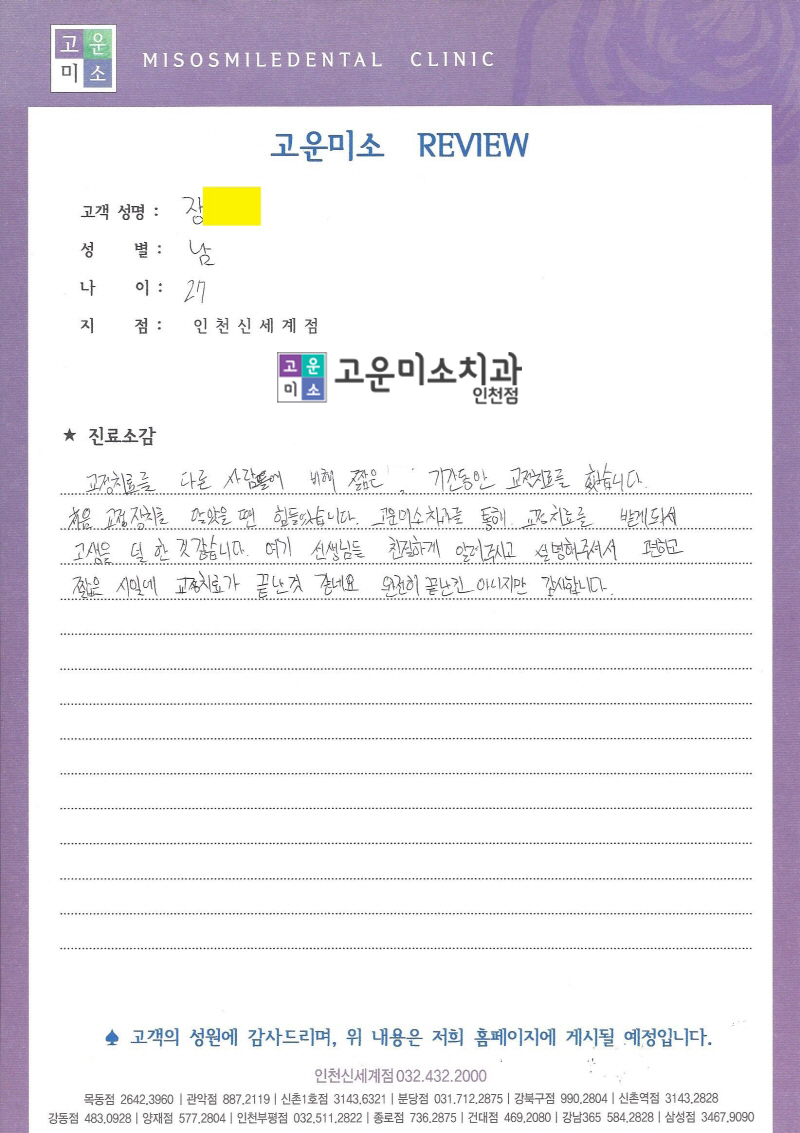 고운
미소
MISOSMILEDENTAL CLINIC
고운미소 REVIEW
고객 성명 : 장
성 별 : 남
나 이 : 27
지 점 : 인천신세계점
고운
미소
고운미소치과
인천점
★ 진료소감
교정치료를 다른 사람들에 비해 짧은 기간동안 교정치료를 했습니다.
처음 교정장치를 았을 땐 힘들었습니다. 고운미소치과를 통해 교정치료를 받게되서
고생을 덜 한 것 같습니다. 여기 선생님들 친절하게 알려주시고 설명해주셔서 편하고
짧은 시일에 교정치료가 끝난것 같네요 완전히 끝난건 아니지만 감사합니다.
♠ 고객의 성원에 감사드리며, 위 내용은 저희 홈페이지에 게시될 예정입니다.
인천신세계점 032.432.2000
목동점 2642,3960 | 관악점 887,2119 | 신촌1호점 3143,6321 | 분당점 031,712,2875 | 강북구점 990,2804 | 신촌역점 3143,2828
강동점 483,0928 | 양재점 577,2804 | 인천부평점 032,511,2822 | 종로점 736,2875 | 건대점 469,2080 | 강남365 584,2828 | 삼성점 3467,9090